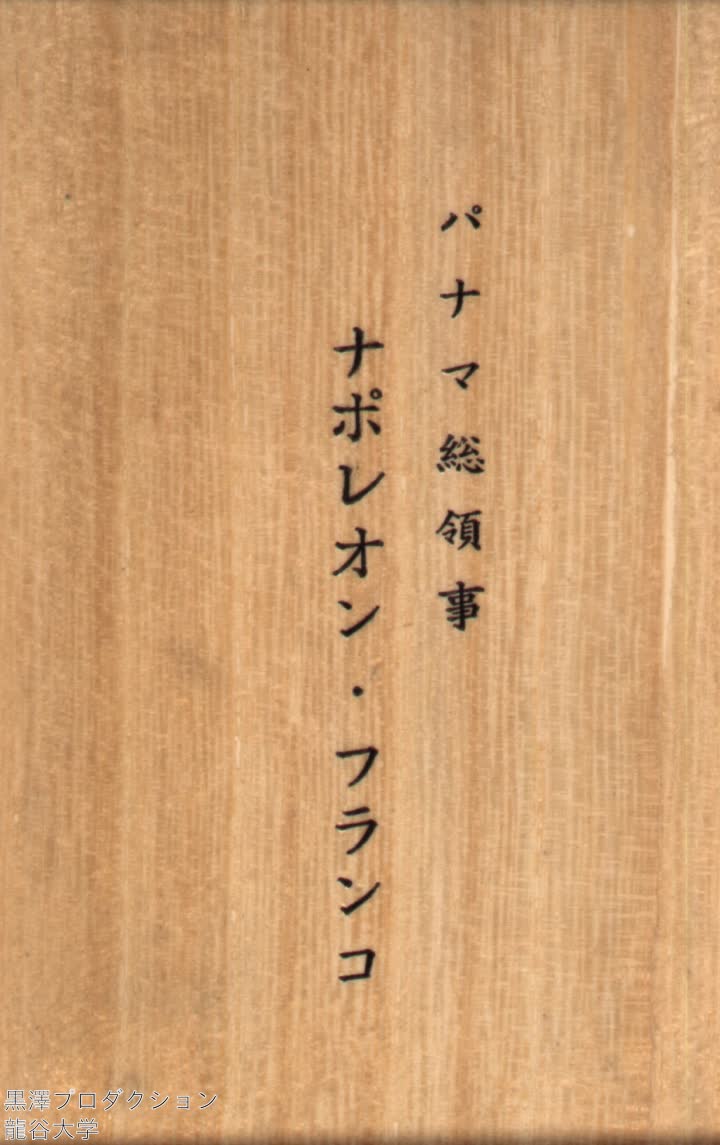 パナマ総領事
ナポレオン・フランコ
黒澤プロダクション
龍谷大学